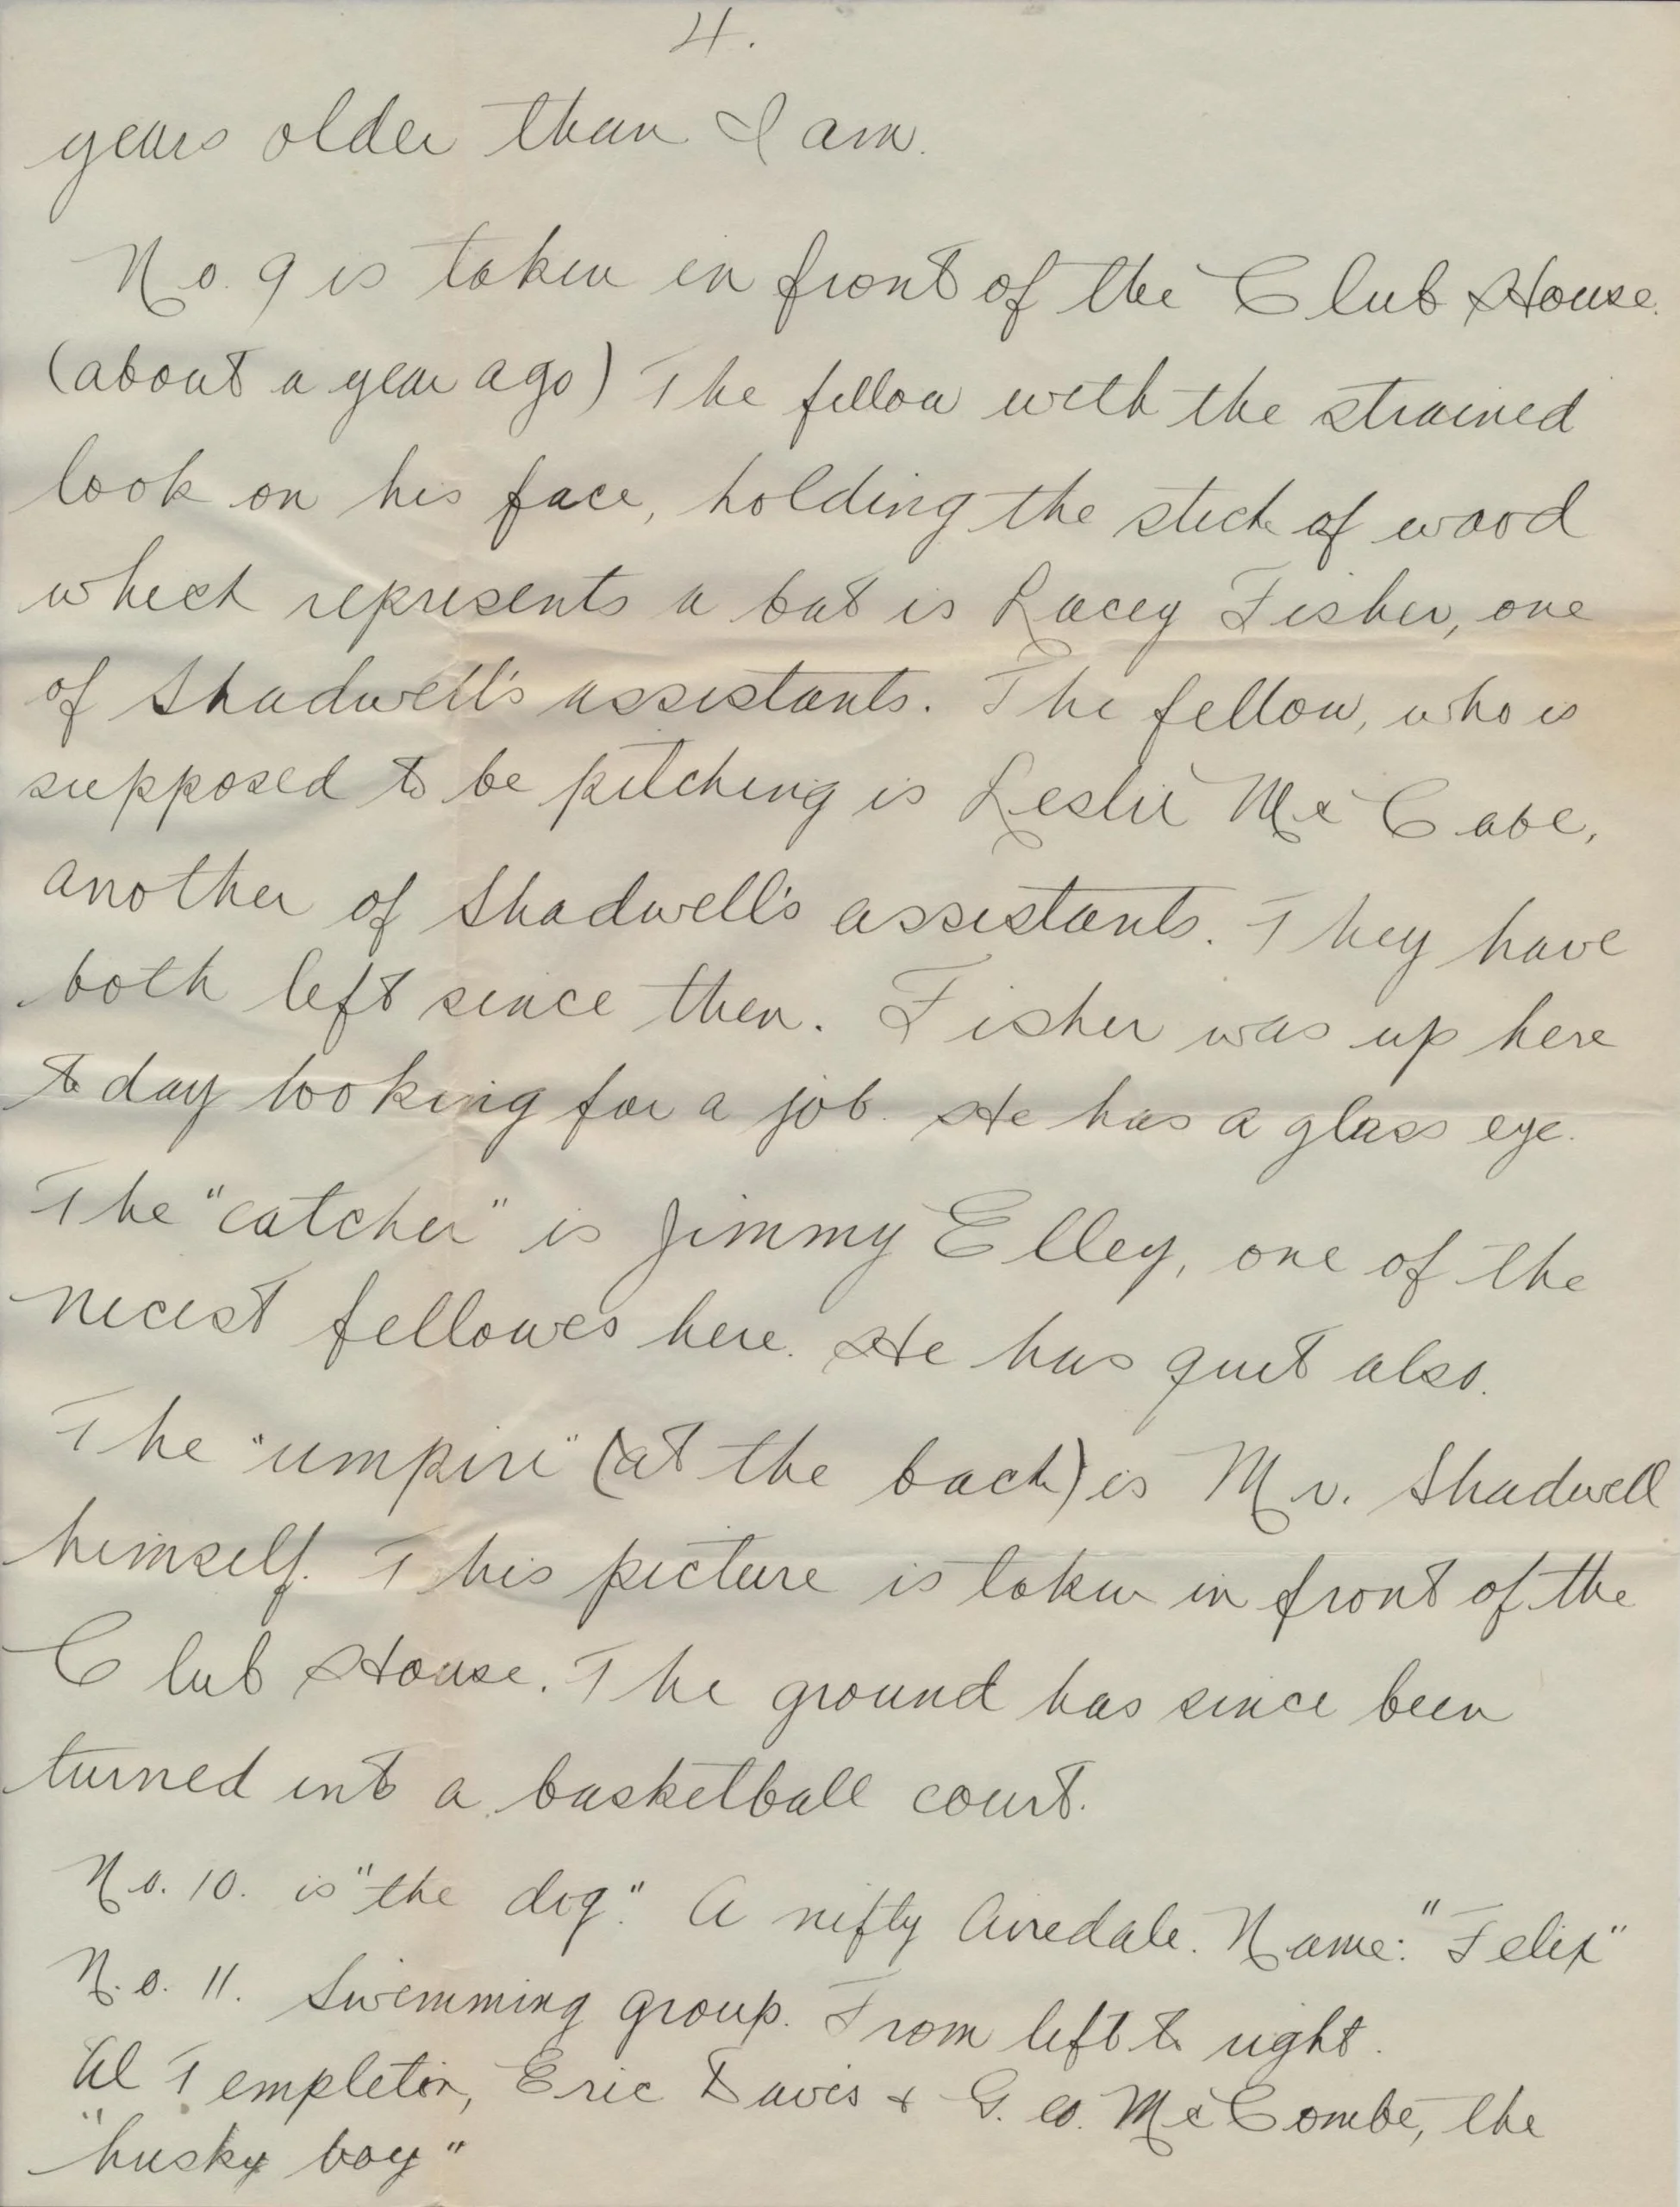 4.
years older than I am.
No. 9 is taken in front of the Club House.
(about a year ago) The fellow with the strained
look on his face, holding the stick of wood
which represents a bat is Lacey Fisher, one
of Shadwell's assistants. The fellow, who is
supposed to be pitching is Leslie McCabe,
another of Shadwell's assistants. They have
both left since then. Fisher was up here
to day looking for a job. He has a glass eye.
The "catcher" is Jimmy Elley, one of the
nicest fellowes here. He has quit also.
The "umpire" (at the back) is Mr. Shadwell
himself. This picture is taken in front of the
Club House. The ground has since been
turned into a basketball court.
No. 10. is "the dog." A nifty Airedale. Name: "Felix"
No. 11. Swimming group. From left to right.
Al Templeton, Eric Davis & G. McCombe, the
"husky boy"